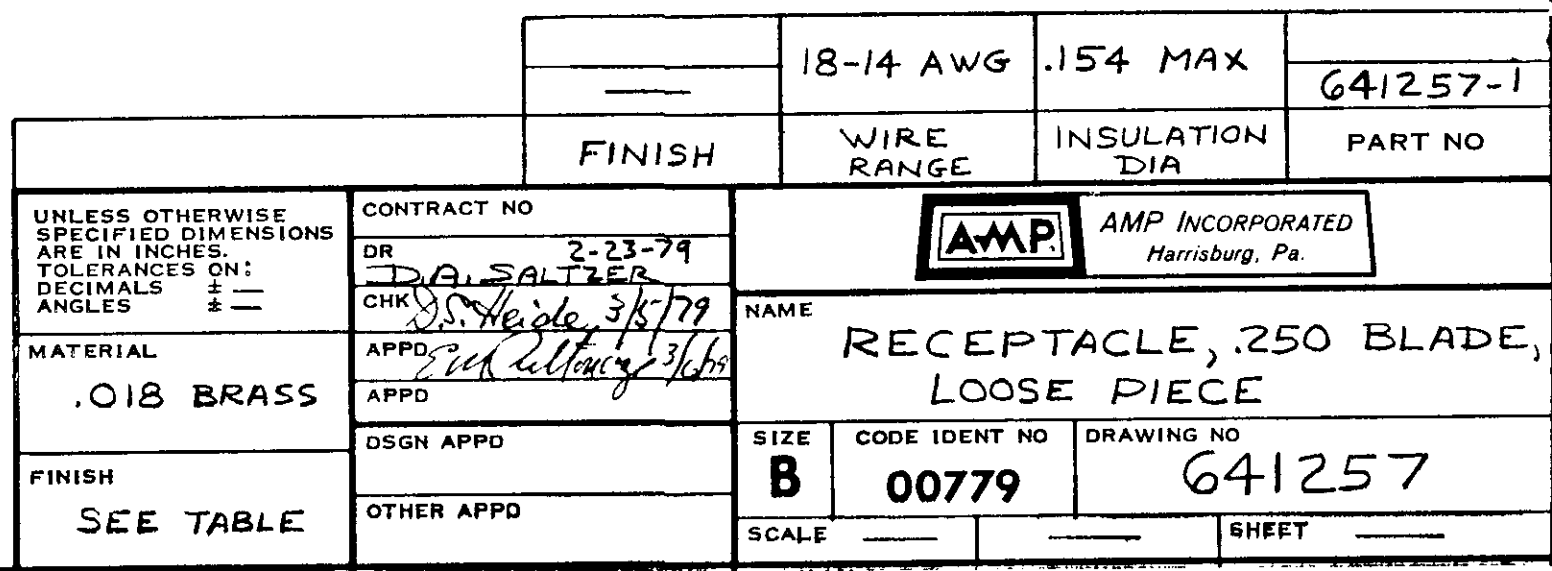 18-14 AWG .154 MAX
— 641257-1
FINISH WIRE RANGE INSULATION DIA PART NO
UNLESS OTHERWISE
SPECIFIED DIMENSIONS
ARE IN INCHES.
TOLERANCES ON:
DECIMALS ± —
ANGLES ± —
MATERIAL
.018 BRASS
FINISH
SEE TABLE
CONTRACT NO
DR 2-23-79
D.A. SALTZER
CHK D.S. Heide 3/5/79
APPD
APPD
DSGN APPD
OTHER APPD
AMP
AMP INCORPORATED
Harrisburg, Pa.
NAME
RECEPTACLE, .250 BLADE,
LOOSE PIECE
SIZE
B
CODE IDENT NO
00779
DRAWING NO
641257
SCALE — — SHEET —